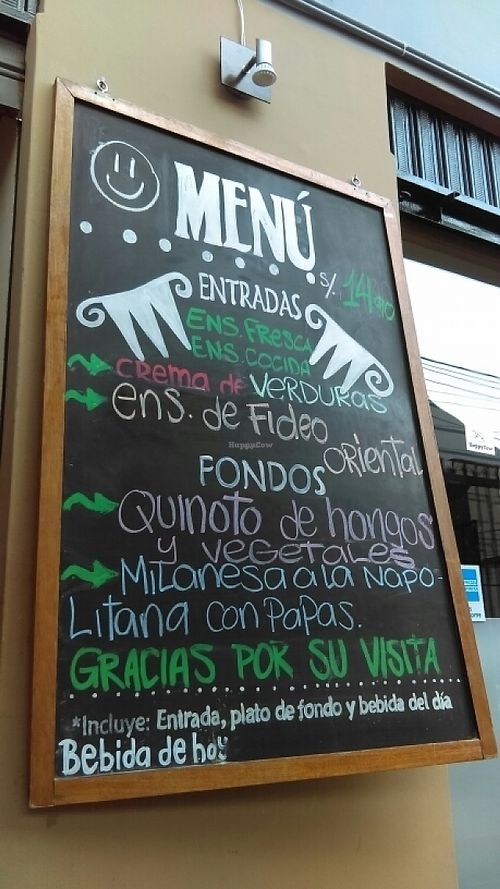 MENÚ
S/. 14.90
ENTRADAS
ENS. FRESCA
ENS. COCIDA
CREMA de VERDURAS
ens. de Fideo
ORIENTAL
FONDOS
QUINOTO de hongos
y vegetales
MILANESA a la NAPO-
LITANA CON PAPAS.
GRACIAS POR SU VISITA
*Incluye: Entrada, plato de fondo y bebida del día
Bebida de hoy
HappyCow
HappyCow